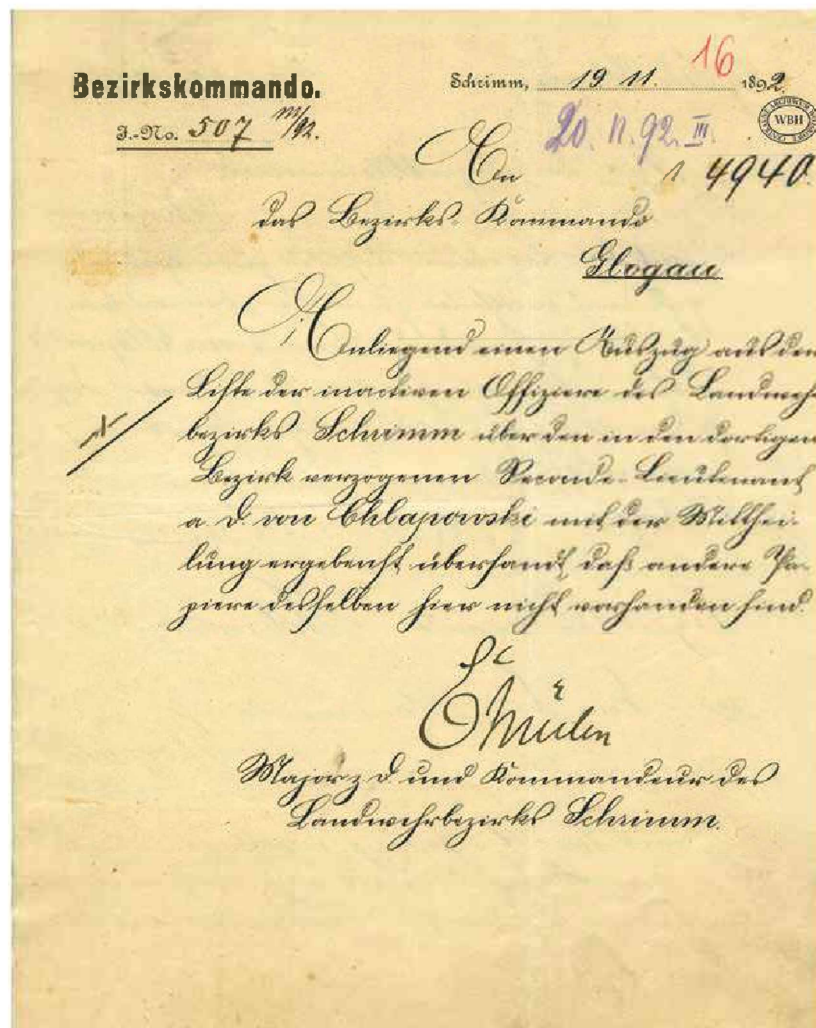 16
Bezirkskommando.
Schrimm, 19 11. 1892.
J.-No. 507 III/92.
20. 11. 92. III.
WBH
An
4940.
das Bezirks-Kommando
Glogau
Anliegend einen Auszug aus den
Liste der inactiven Offiziere des Landwehr
bezirks Schrimm über den in den dortigen
Bezirk verzogenen Seconde-Lieutenant
a. D. von Chlapowski mit der Mitthei-
lung ergebenst übersandt, daß andere Pa-
piere desselben hier nicht vorhanden sind.
Major z. D. und Kommandeur des
Landwehrbezirks Schrimm.